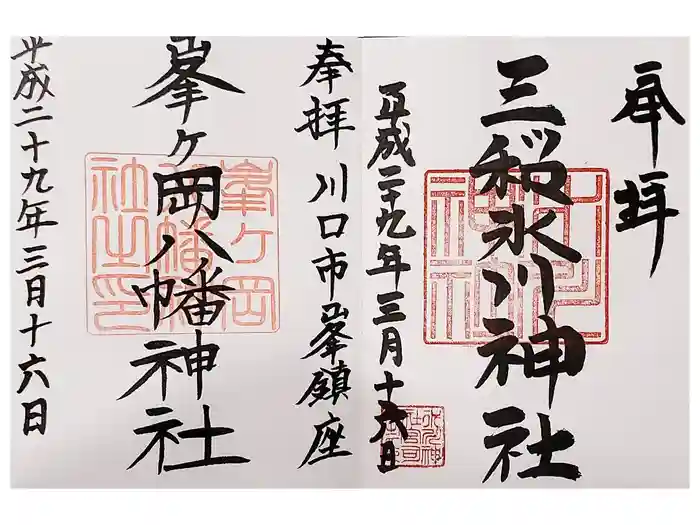 奉拝
三桜氷川神社
平成二十九年三月十六日
奉拝 川口市峯鎮座
峯ヶ岡八幡神社
平成二十九年三月十六日
峯ヶ岡八幡神社之印